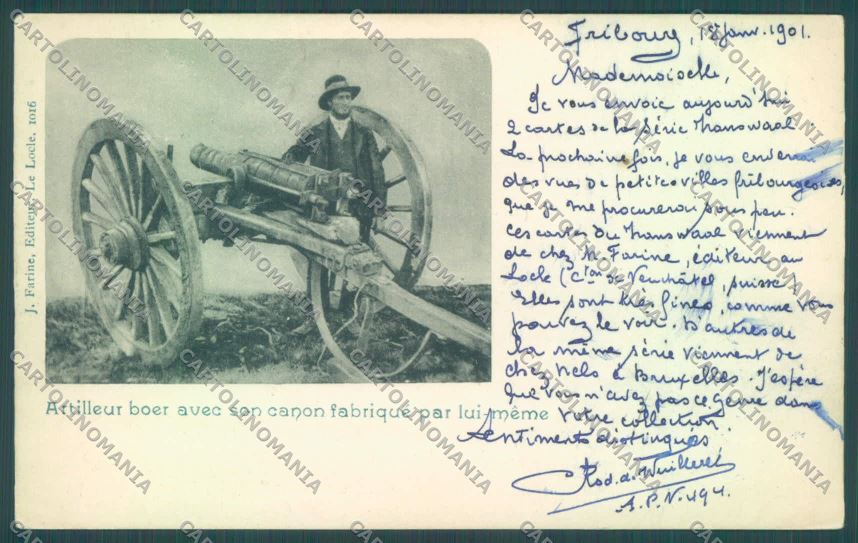 J. Farine, Editeur, Le Locle. 1016
Artilleur boer avec son canon fabriqué par lui même
Fribourg, 18 janv. 1901.
Mademoiselle,
Je vous envoie aujourd'hui
2 cartes de la série Transwaal.
La prochaine fois, je vous enverrai
des vues de petites villes fribourgeoises,
que je me procurerai sous peu.
Ces cartes du Transwaal viennent
de chez M. Farine, éditeur au
Locle (Cton de Neuchâtel, Suisse).
Elles sont très fines, comme vous
pouvez le voir. D'autres de
la même série viennent de
chez Nels à Bruxelles. J'espère
que vous n'avez pas ce genre dans
votre collection.
Sentiments distingués
Rod. de Wuilleret
A.P.N. 494.
CARTOLINOMANIA